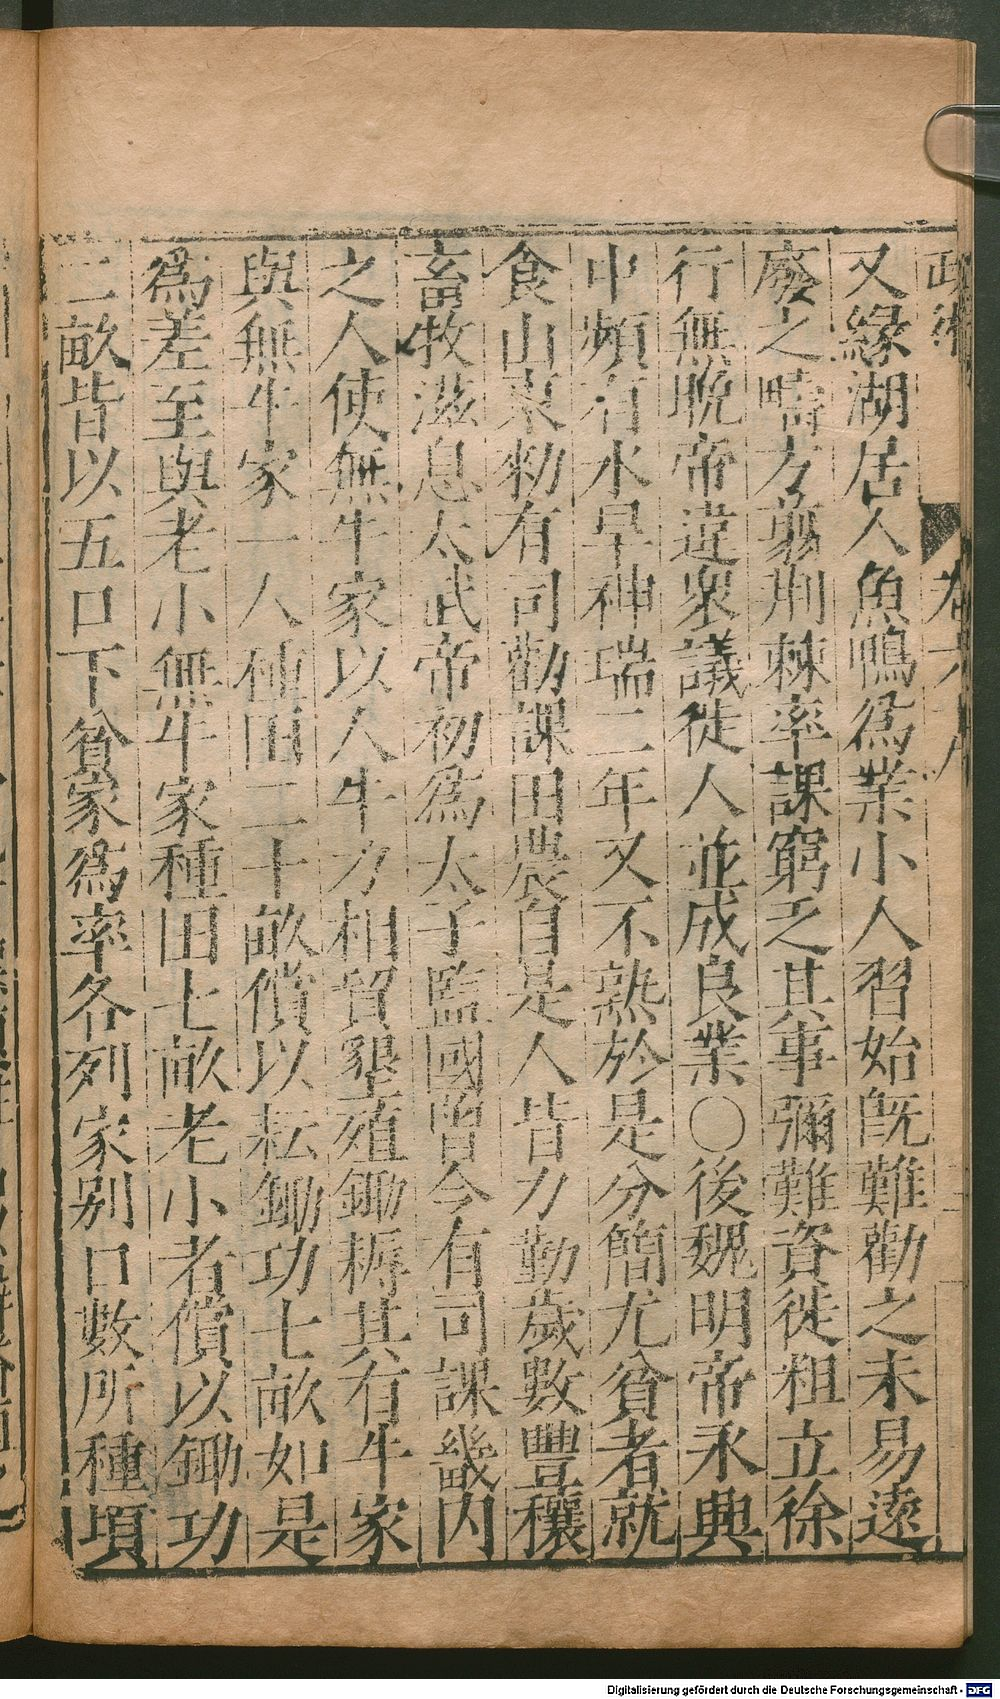 又緣湖居人魚鴨爲業小人習始旣難勸之未易遠
廢之疇方翦荆棘率課窮乏其事彌難資徙粗立徐
行無晚帝違衆議徙人並成良業○後魏明帝永興
中頻有水旱神瑞二年又不熟於是分簡尤貧者就
食山東勑有司勸課田農自是人皆力勤歲數豐穰
畜牧滋息太武帝初爲太子監國曾令有司課畿內
之人使無牛家以人牛力相貿墾殖鋤耨其有牛家
與無牛家一人種田二十畝償以耘鋤功七畝如是
爲差至與老小無牛家種田七畝老小者償以鋤功
二畝皆以五口下貧家爲率各列家別口數所種頃
Digitalisierung gefördert durch die Deutsche Forschungsgemeinschaft - DFG